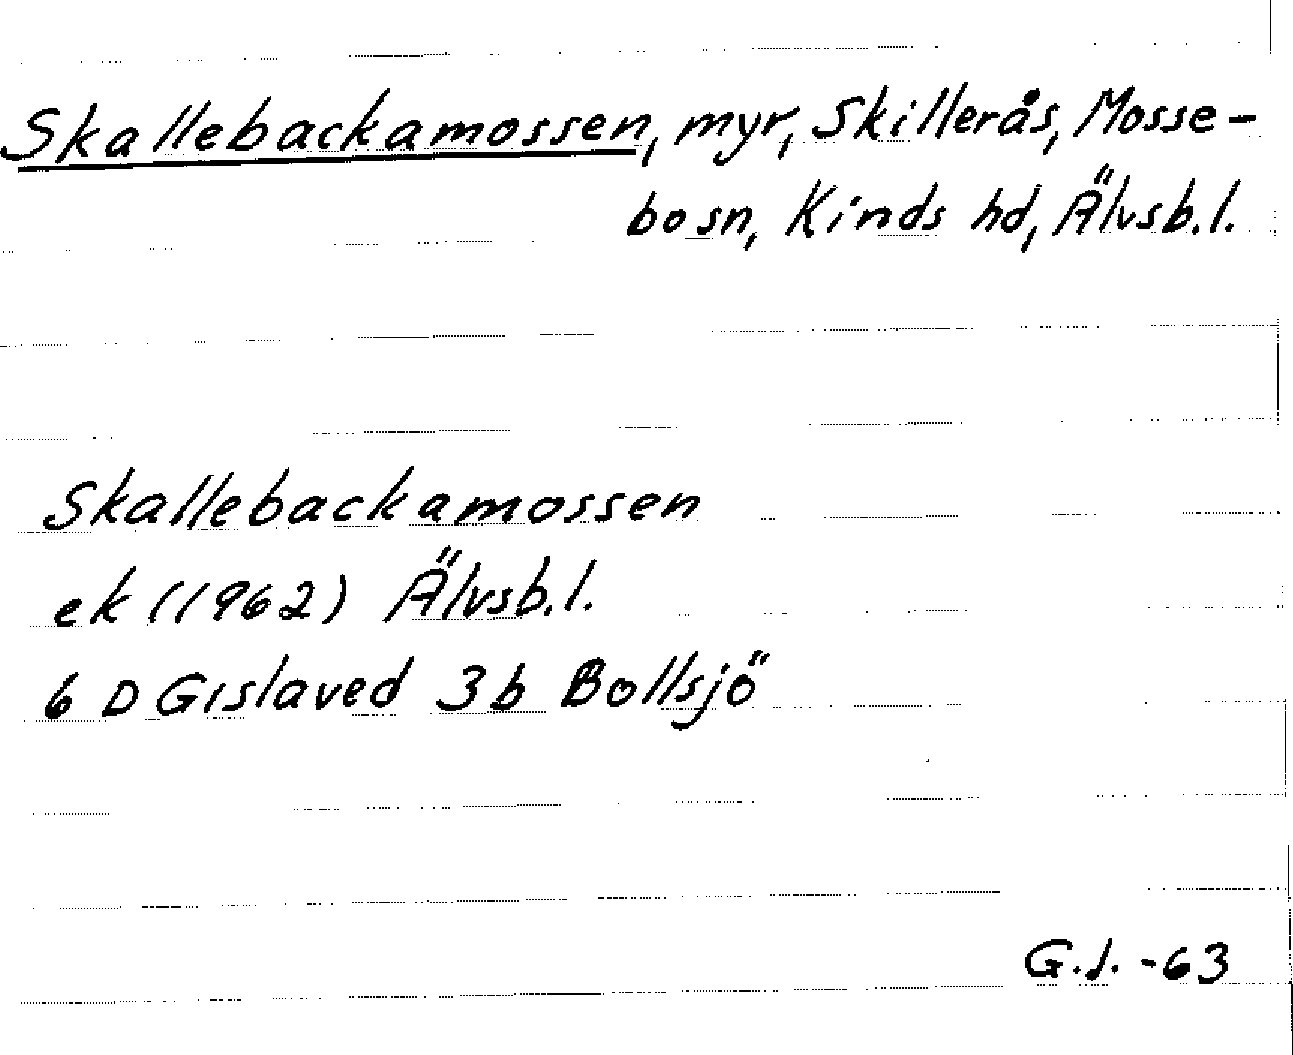 Skallebackamossen, myr, Skillerås, Mosse-
bo sn, Kinds hd, Älvsb.l.
Skallebackamossen
ek (1962) Älvsb.l.
6 D Gislaved 3b Bollsjö
G.J. -63